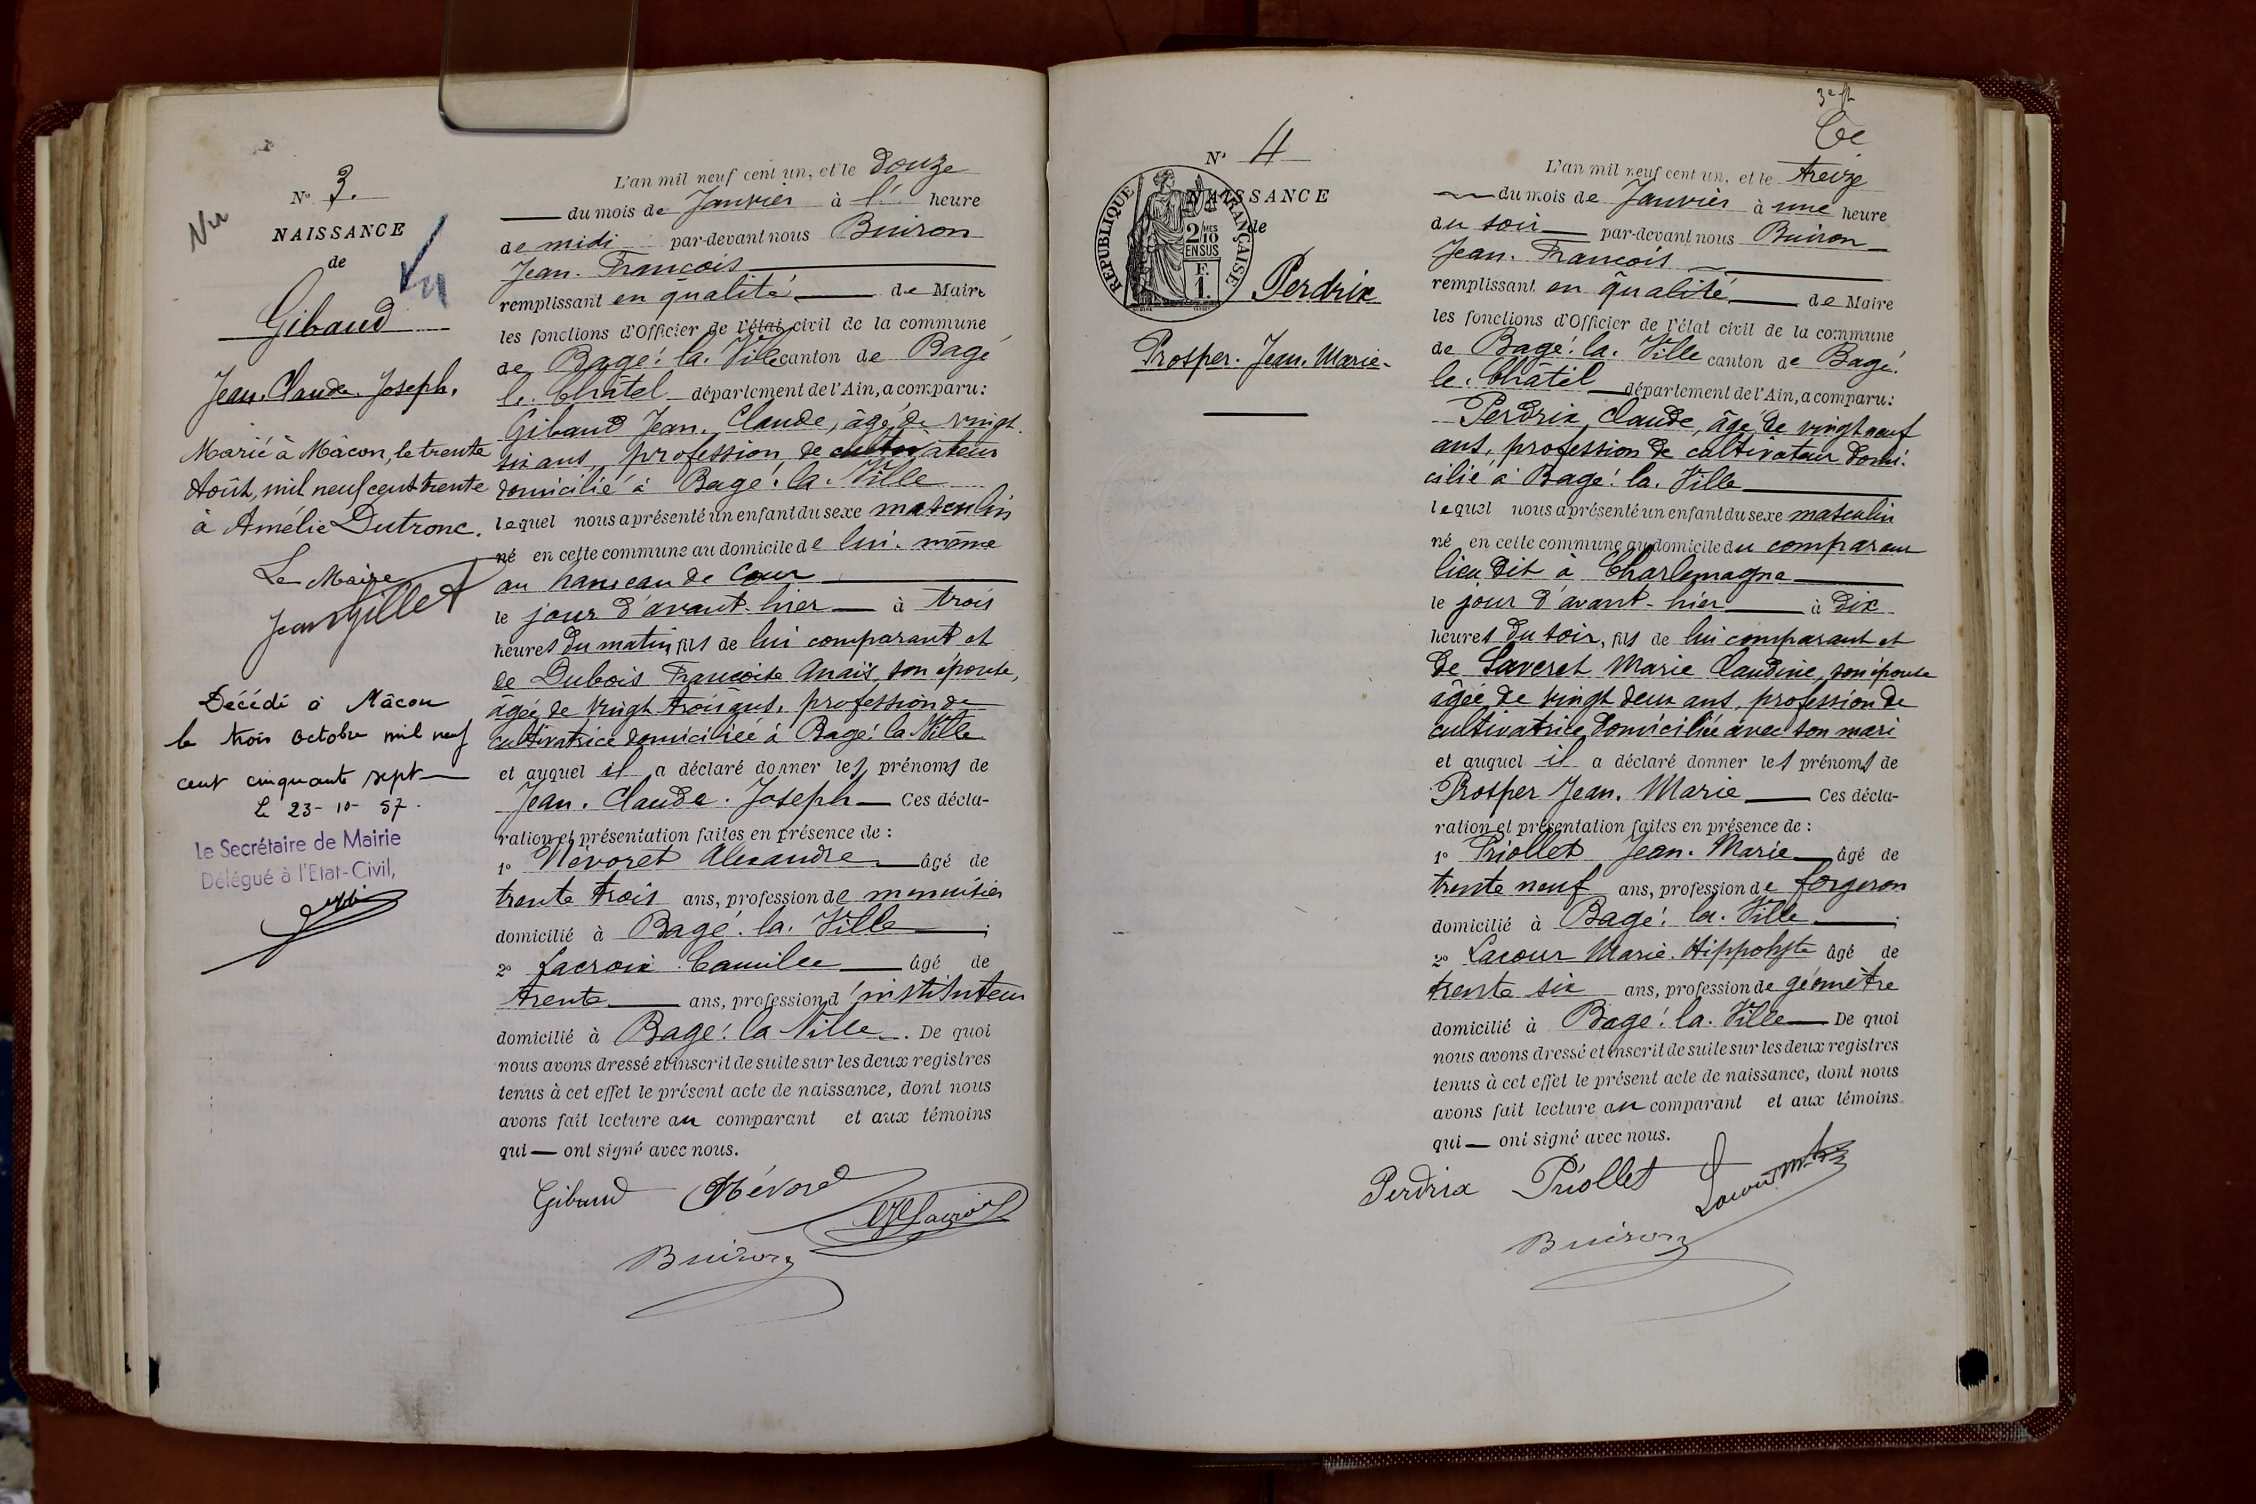 Nº 3.
Vu
NAISSANCE
de
Vu
Gibaud
Jean. Claude. Joseph.
Marié à Mâcon, le trente
Août, mil neuf cent trente
à Amélie Dutronc.
Le Maire
Jean Gillet
Décédé à Mâcon
le trois octobre mil neuf
cent cinquante sept
Le 23-10-57.
Le Secrétaire de Mairie
Délégué à l'Etat-Civil,
L'an mil neuf cent un, et le douze
du mois de Janvier à l' heure
de midi par-devant nous Buiron
Jean. François
remplissant en qualité de Maire
les fonctions d'Officier de l'état civil de la commune
de Bagé. la. Ville canton de Bagé
le. Châtel département de l'Ain, a comparu :
Gibaud Jean. Claude, âgé de vingt
six ans, profession de cultivateur
domicilié à Bagé. la. Ville
lequel nous a présenté un enfant du sexe masculin
né en cette commune au domicile de lui. même
au hameau de Cour
le jour d'avant-hier à trois
heures du matin, fils de lui comparant et
de Dubois Françoise Anaïs, son épouse,
âgée de vingt trois ans, profession de
cultivatrice domiciliée à Bagé. la Ville
et auquel il a déclaré donner les prénoms de
Jean. Claude. Joseph Ces décla-
ration et présentation faites en présence de :
1º Névoret Alexandre âgé de
trente trois ans, profession de menuisier
domicilié à Bagé. la. Ville ;
2º Lacroix Camille âgé de
trente ans, profession d'instituteur
domicilié à Bagé. la Ville. De quoi
nous avons dressé et inscrit de suite sur les deux registres
tenus à cet effet le présent acte de naissance, dont nous
avons fait lecture au comparant et aux témoins
qui — ont signé avec nous.
Gibaud Névoret
Lacroix
Buiron
3e
Nº 4
NAISSANCE
de
REPUBLIQUE FRANÇAISE
2/10
EN SUS
F.
1.
Perdrix
Prosper. Jean. Marie.
L'an mil neuf cent un, et le treize
du mois de Janvier à une heure
du soir par-devant nous Buiron
Jean. François
remplissant en qualité de Maire
les fonctions d'Officier de l'état civil de la commune
de Bagé. la. Ville canton de Bagé.
le. Châtel département de l'Ain, a comparu :
Perdrix Claude, âgé de vingt neuf
ans, profession de cultivateur domi-
cilié à Bagé. la. Ville
lequel nous a présenté un enfant du sexe masculin
né en cette commune au domicile du comparant
lieu dit à Charlemagne
le jour d'avant-hier à dix
heures du soir, fils de lui comparant et
de Laveret Marie Claudine, son épouse
âgée de vingt deux ans, profession de
cultivatrice domiciliée avec son mari
et auquel il a déclaré donner les prénoms de
Prosper Jean. Marie Ces décla-
ration et présentation faites en présence de :
1º Priollet Jean. Marie âgé de
trente neuf ans, profession de forgeron
domicilié à Bagé. la. Ville ;
2º Lacour Marie. Hippolyte âgé de
trente six ans, profession de géomètre
domicilié à Bagé. la. Ville De quoi
nous avons dressé et inscrit de suite sur les deux registres
tenus à cet effet le présent acte de naissance, dont nous
avons fait lecture au comparant et aux témoins
qui — ont signé avec nous.
Perdrix Priollet Lacour
Buiron